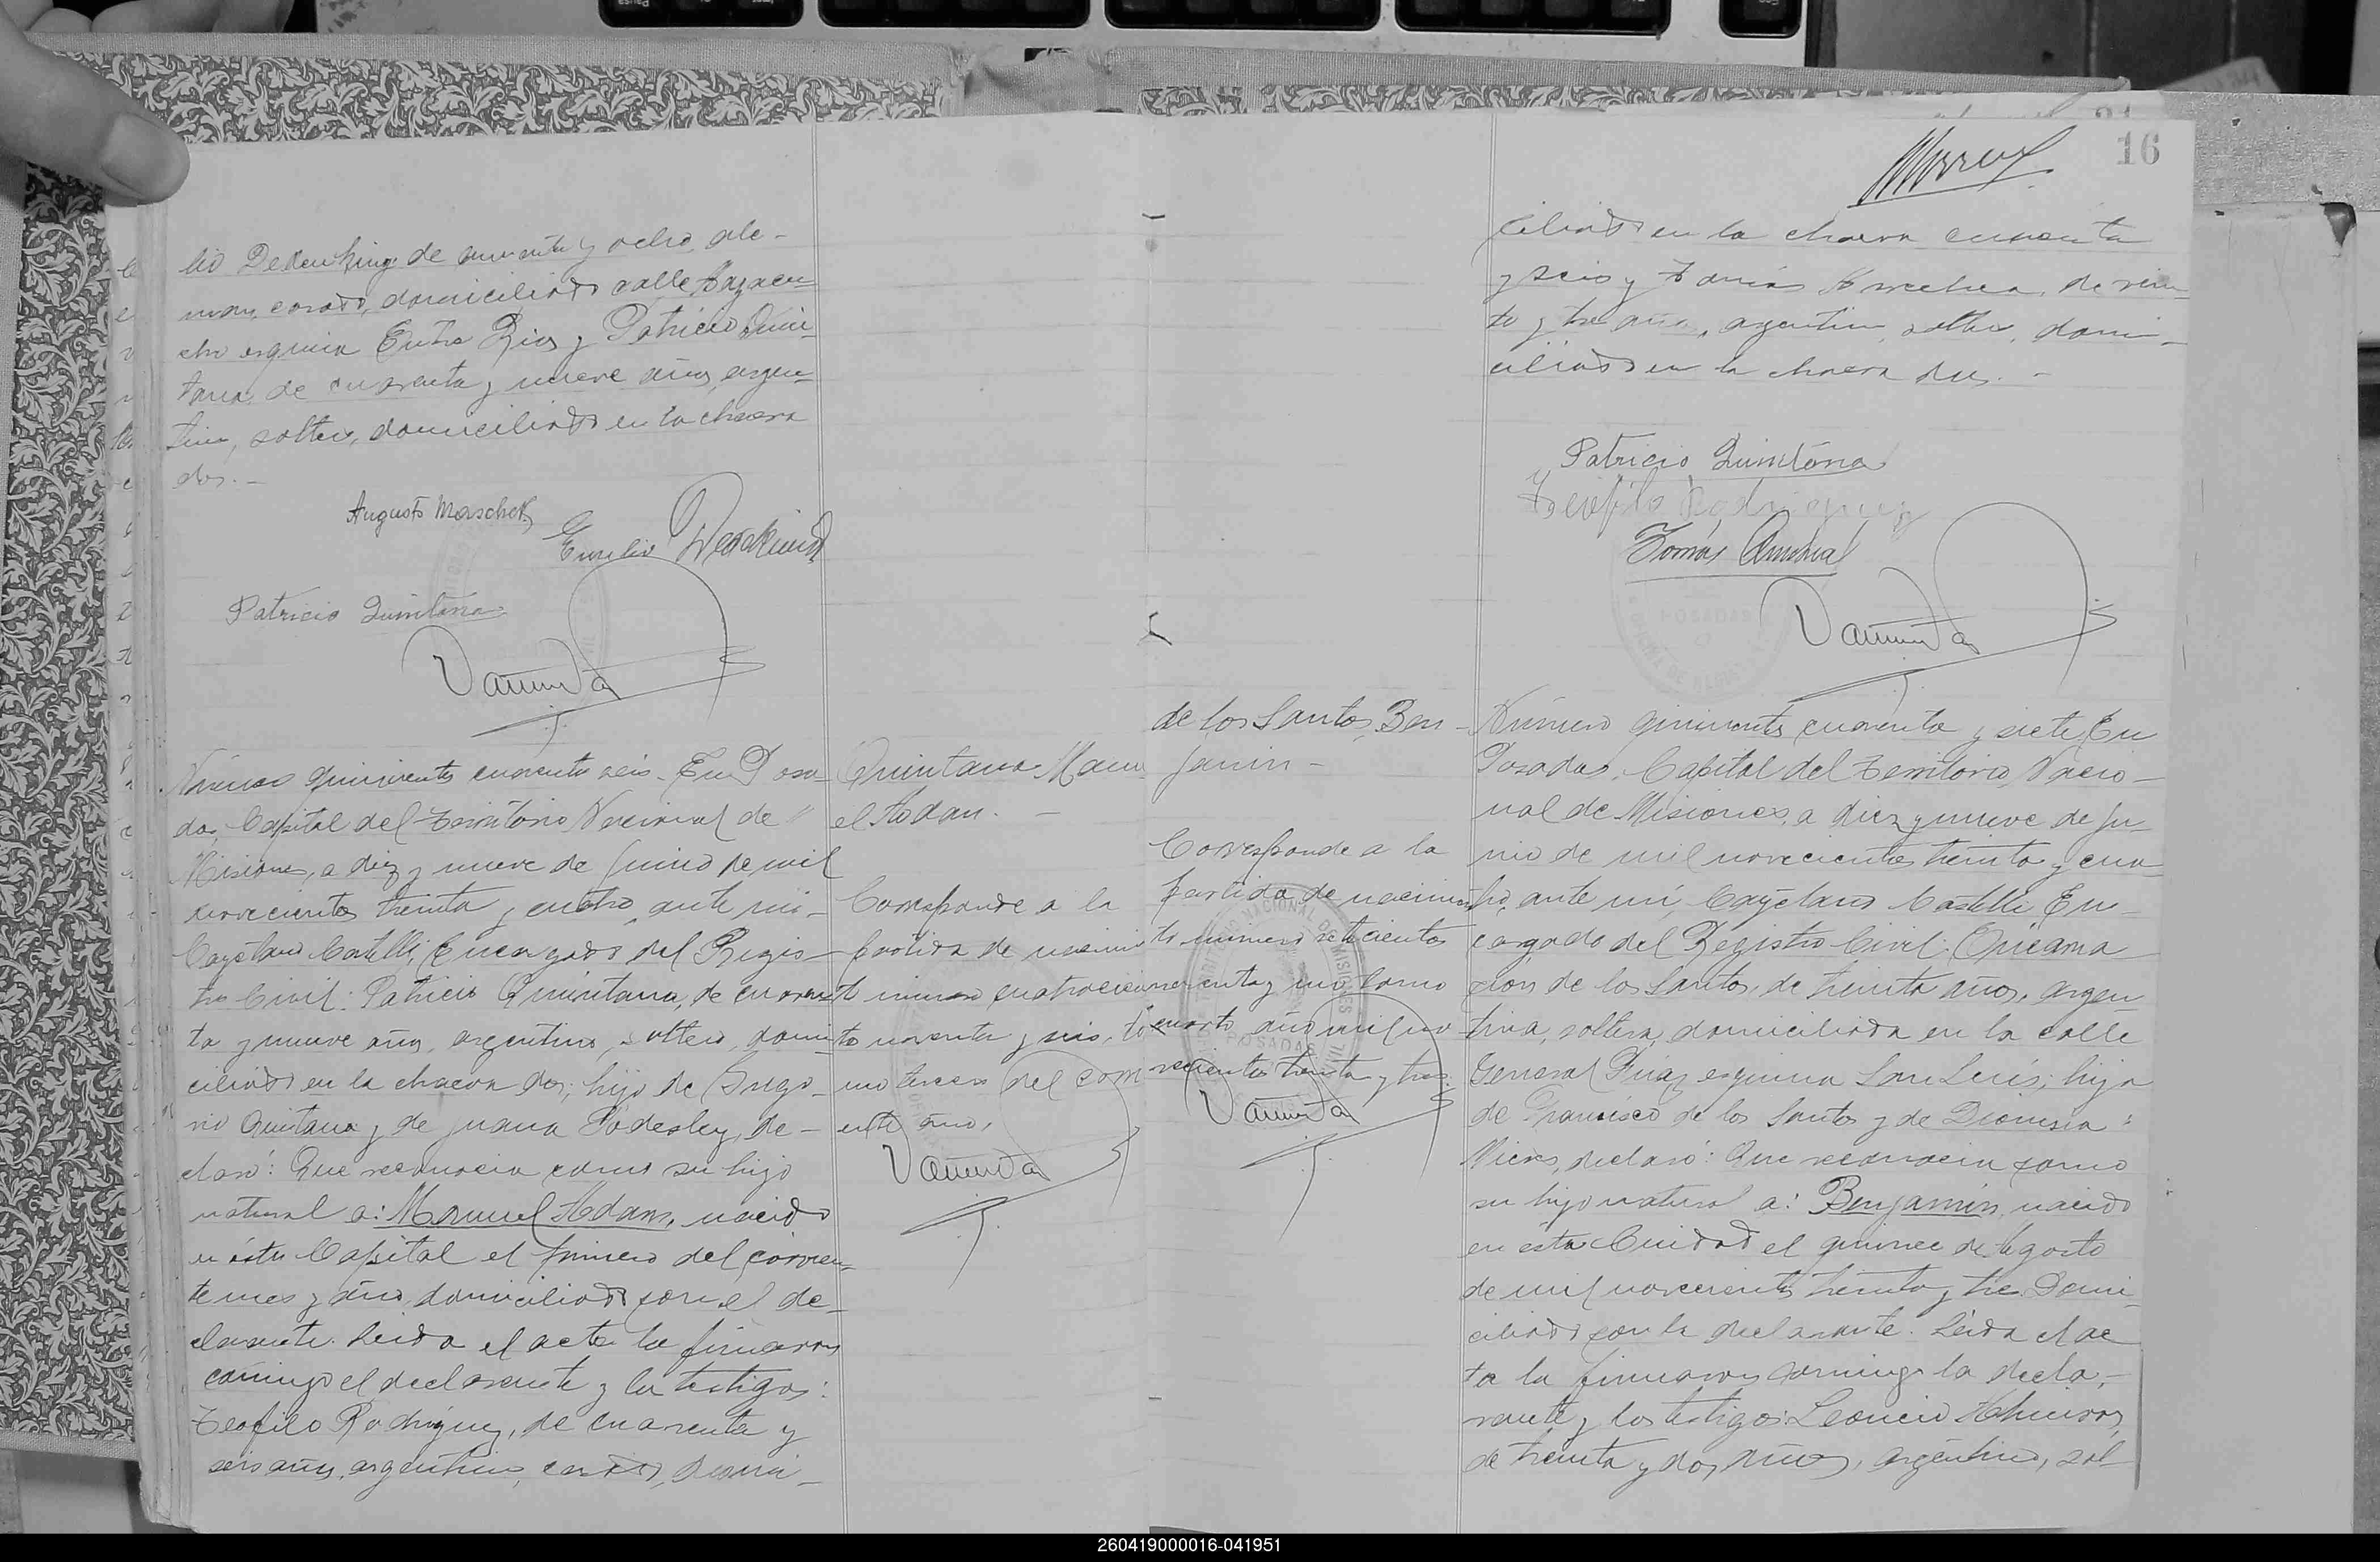 lio Dedenking de cuarenta y ocho, ale-
man, casado, domiciliado calle Ayacu-
cho esquina Entre Rios y Patricio Quin-
tana, de cuarenta y nueve años, argen-
tino, soltero, domiciliado en la chacra
dos.-
Augusto Maschek
Emilio
Patricio Quintana
Número quinientos cuarenta seis. En Posa-
das, Capital del Territorio Nacional de
Misiones, a diez y nueve de Junio de mil
novecientos treinta y cuatro, ante mi
Cayetano Castelli, Encargado del Regis-
tro Civil: Patricio Quintana, de cuaren-
ta y nueve años, argentino, soltero, domi-
ciliado en la chacra dos; hijo de
Quintana y de Juana, de-
claró: Que reconocia como su hijo
natural a: Manuel Adan, nacido
en ésta Capital el primero del corrien-
te mes y año, domiciliado con el de-
clarante. Leida el acta la firmaron
conmigo el declarante y los testigos:
Teofilo Rodriguez, de cuarenta y
seis años, argentino, casado, domi-
Quintana Manu
el Adan. -
Corresponde a la
partida de nacimien
to número cuatrocien
tos noventa y seis, to
mo tercero del corri
ente año,
16
ciliado en la chacra cuarenta
y seis y Tomás, de vein-
te y tres años, argentino, soltero, domi-
ciliado en la chacra dos. -
Patricio Quintana
Teófilo Rodriguez
Tomás
de los Santos, Ben-
jamin -
Corresponde a la
partida de nacimien
to número setecientos
noventa y uno tomo
cuarto, año mil no
vecientos treinta y tres.
Número quinientos cuarenta y siete. En
Posadas, Capital del Territorio Nacio-
nal de Misiones, a diez y nueve de Ju-
nio de mil novecientos treinta y cua-
tro, ante mí, Cayetano Castelli En-
cargado del Registro Civil:
de los Santos, de treinta años, argen-
tina, soltera, domiciliada en la calle
General Paz esquina San Luis; hija
de Francisco de los Santos y de Dionisia
declaró: Que reconocia como
su hijo natural a: Benjamin, nacido
en esta Ciudad el quince de Agosto
de mil novecientos treinta y tres. Domi-
ciliado con la declarante. Leida el ac
ta la firmaron conmigo la decla-
rante y los testigos: Leoncio
de treinta y dos años, argentino, sol-
260419000016-041951